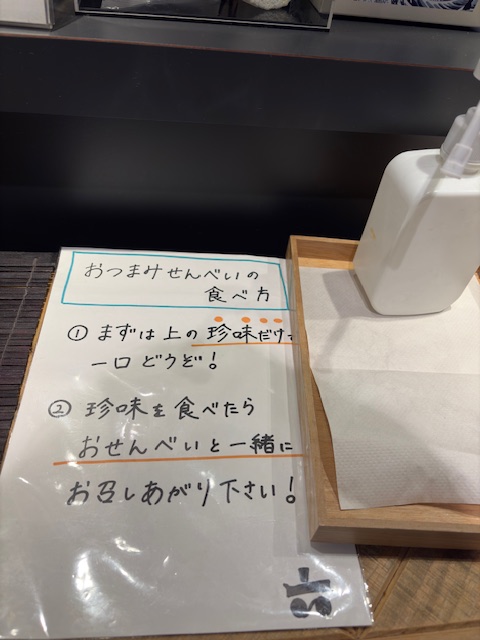 おつまみせんべいの
食べ方
① まずは上の珍味だけ
一口どうぞ!
② 珍味を食べたら
おせんべいと一緒に
お召しあがり下さい!